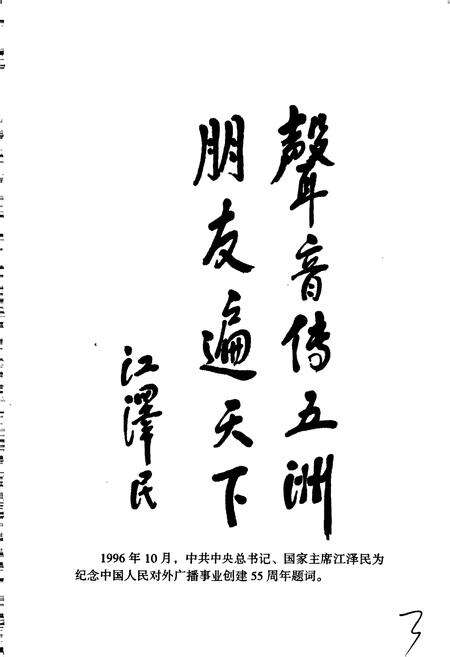 聲音传五洲
朋友遍天下
江澤民
1996 年 10 月，中共中央总书记、国家主席江泽民为
纪念中国人民对外广播事业创建 55 周年题词。
3